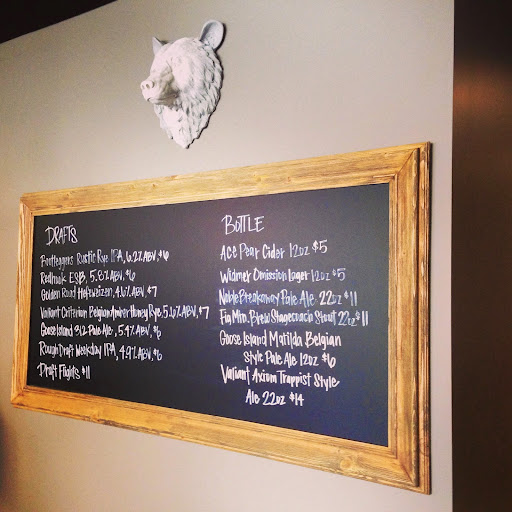 DRAFTS
Bootleggers Rustic Rye IPA, 6.2% ABV, $6
Redhook ESB, 5.8% ABV, $6
Golden Road Hefeweizen, 4.6% ABV, $7
Variant Criterion Belgian Amber Honey Rye 5.6% ABV, $7
Goose Island 312 Pale Ale, 5.4% ABV, $6
Rough Draft Weekday IPA, 4.9% ABV, $6
Draft Flights $11
BOTTLE
Ace Pear Cider 12oz $5
Widmer Omission Lager 12oz $5
Noble Breakaway Pale Ale 22oz $11
Fig Mtn. Brew Stagecoach Stout 22oz $11
Goose Island Matilda Belgian
Style Pale Ale 12oz $6
Variant Axium Trappist Style
Ale 22oz $14